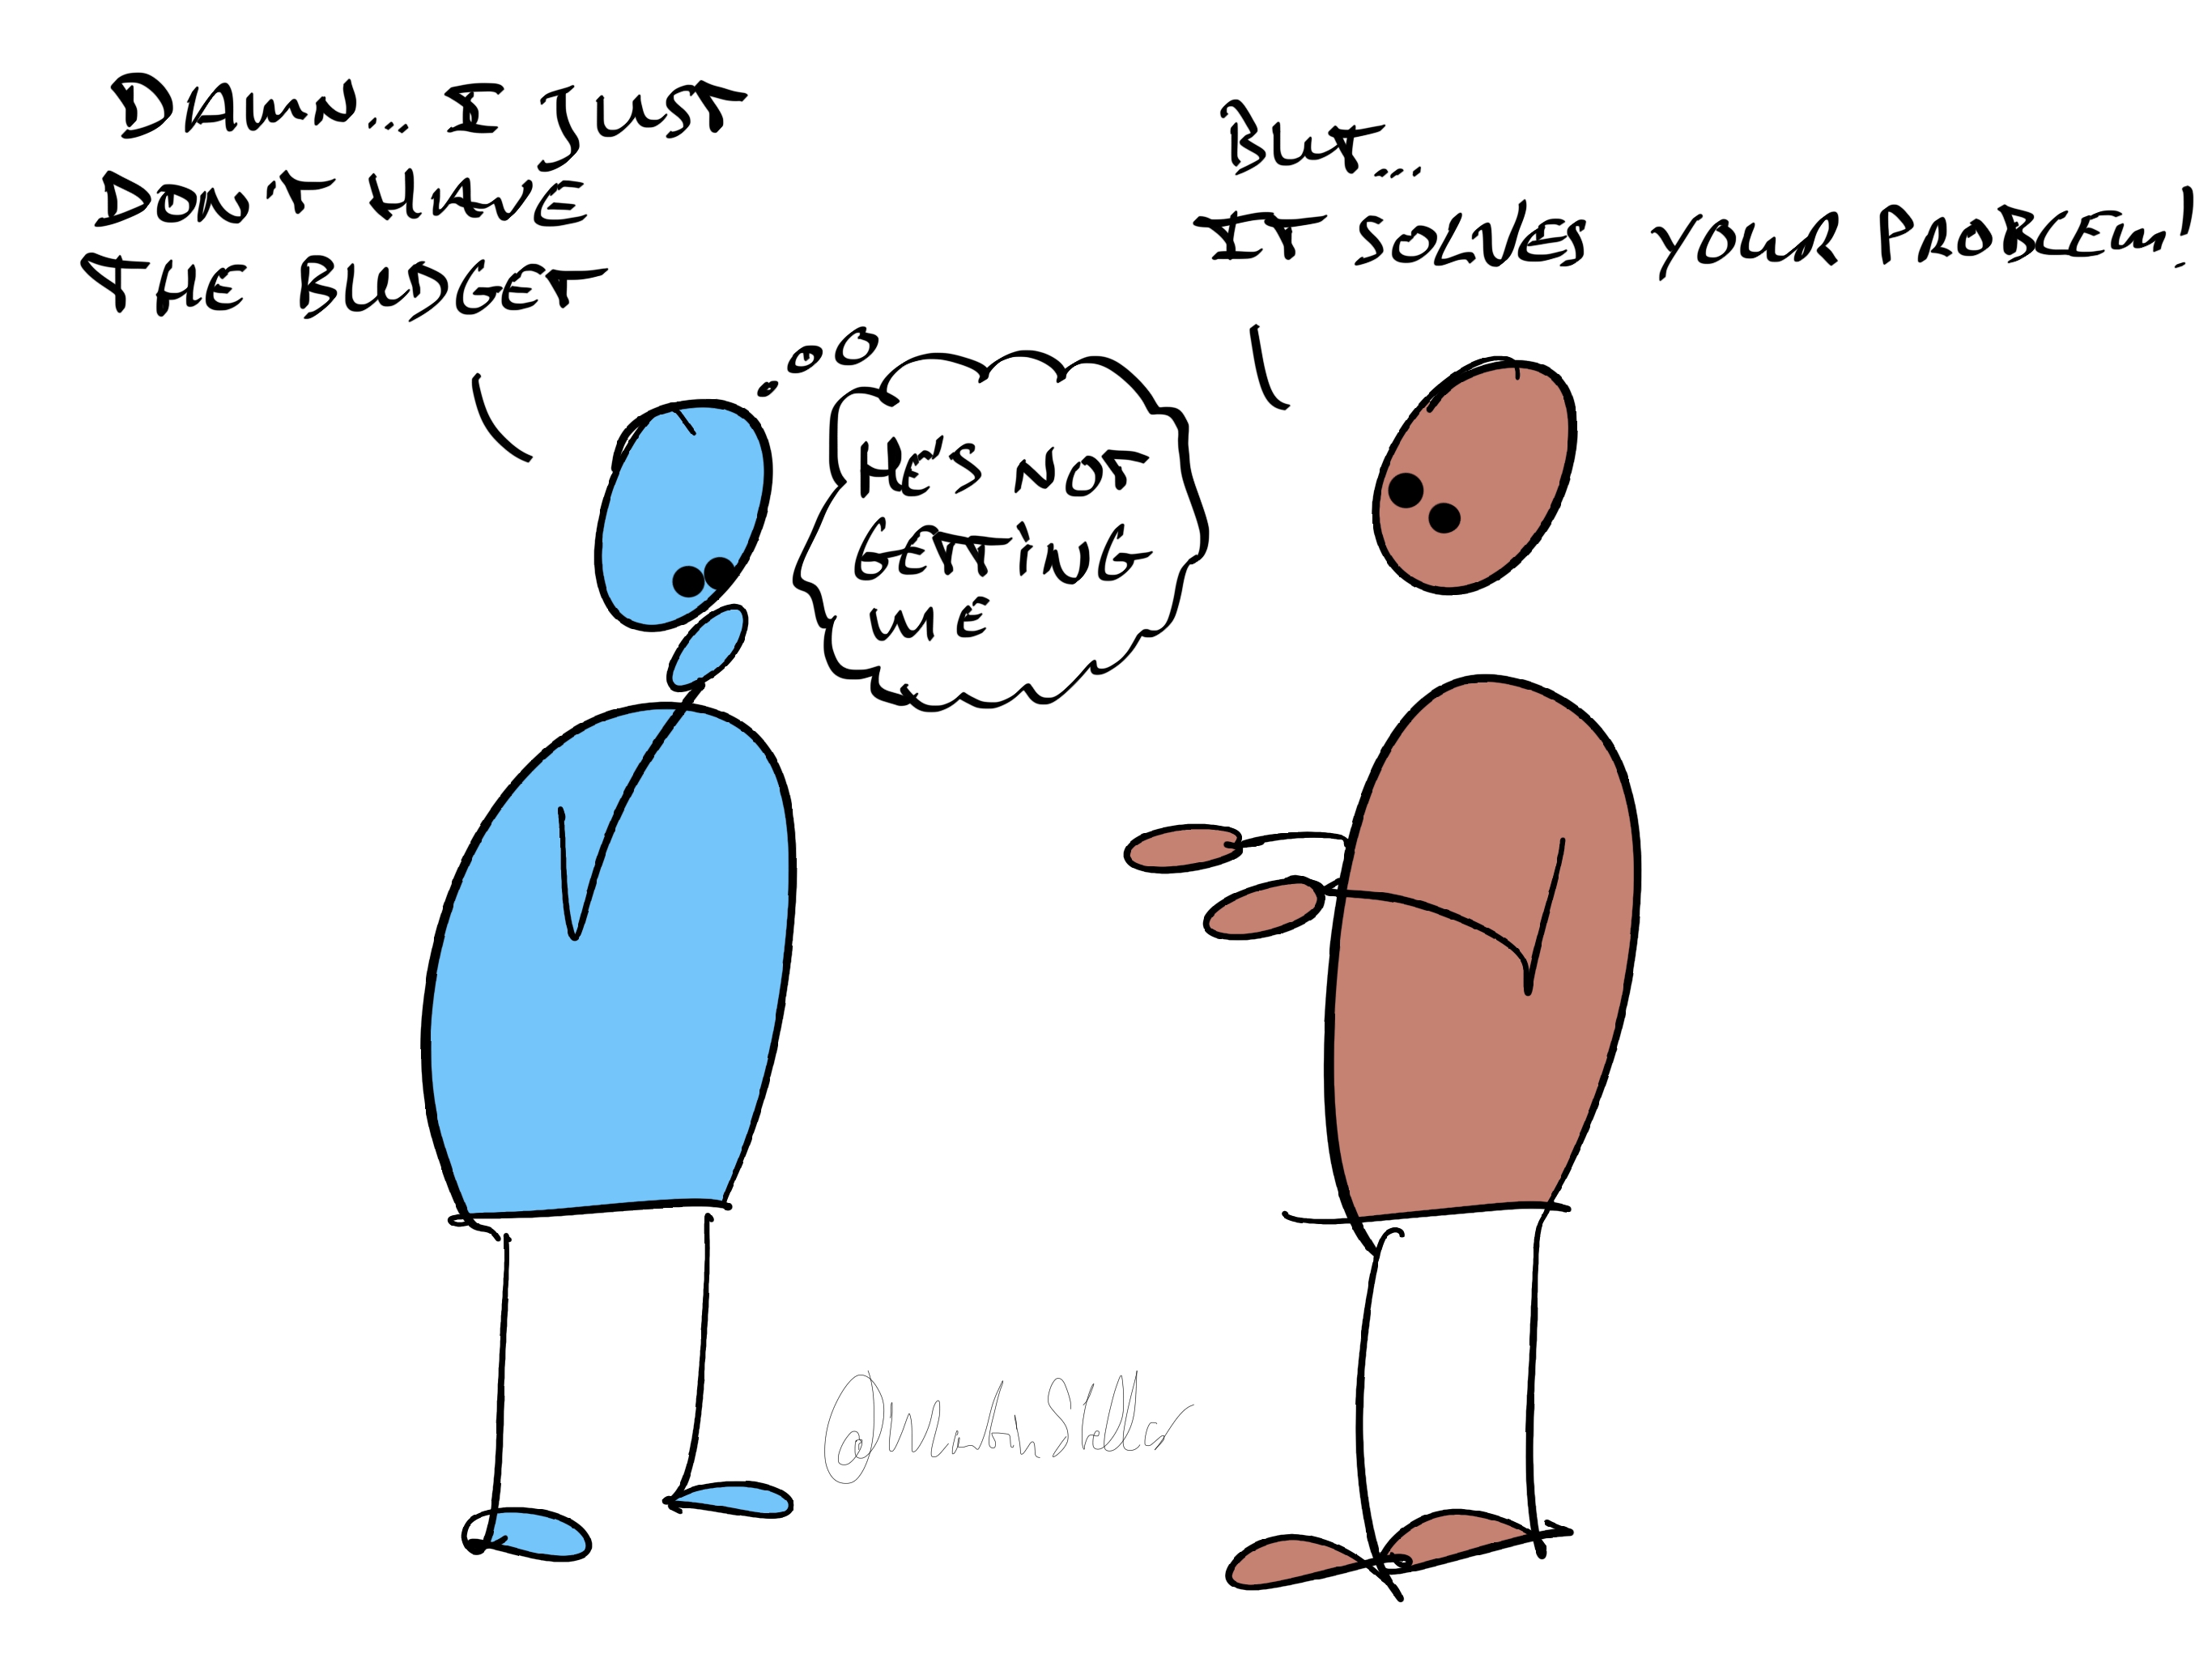 DAMN... I JUST
DON'T HAVE
THE BUDGET
BUT...
IT SOLVES YOUR PROBLEM!
HE'S NOT
GETTING
ME
@MartinStellar